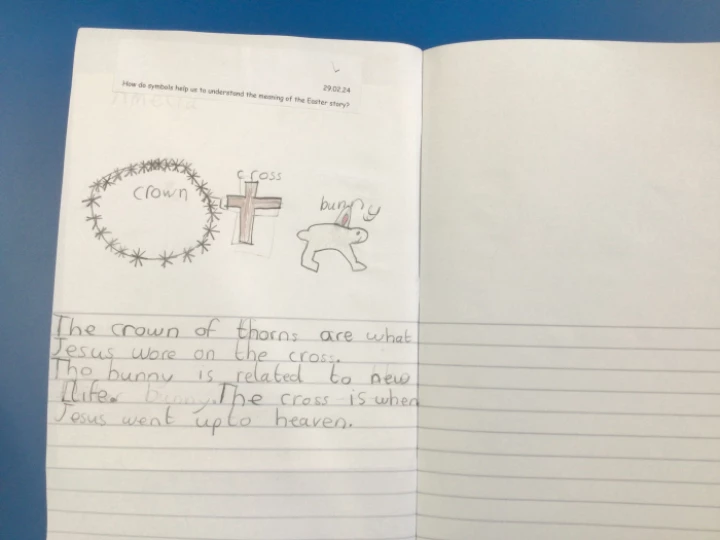 29.02.24
How do symbols help us to understand the meaning of the Easter story?
cross
crown
bunny
The crown of thorns are what
Jesus wore on the cross.
Tho bunny is related to new
life. bunny. The cross is when
Jesus went up to heaven.